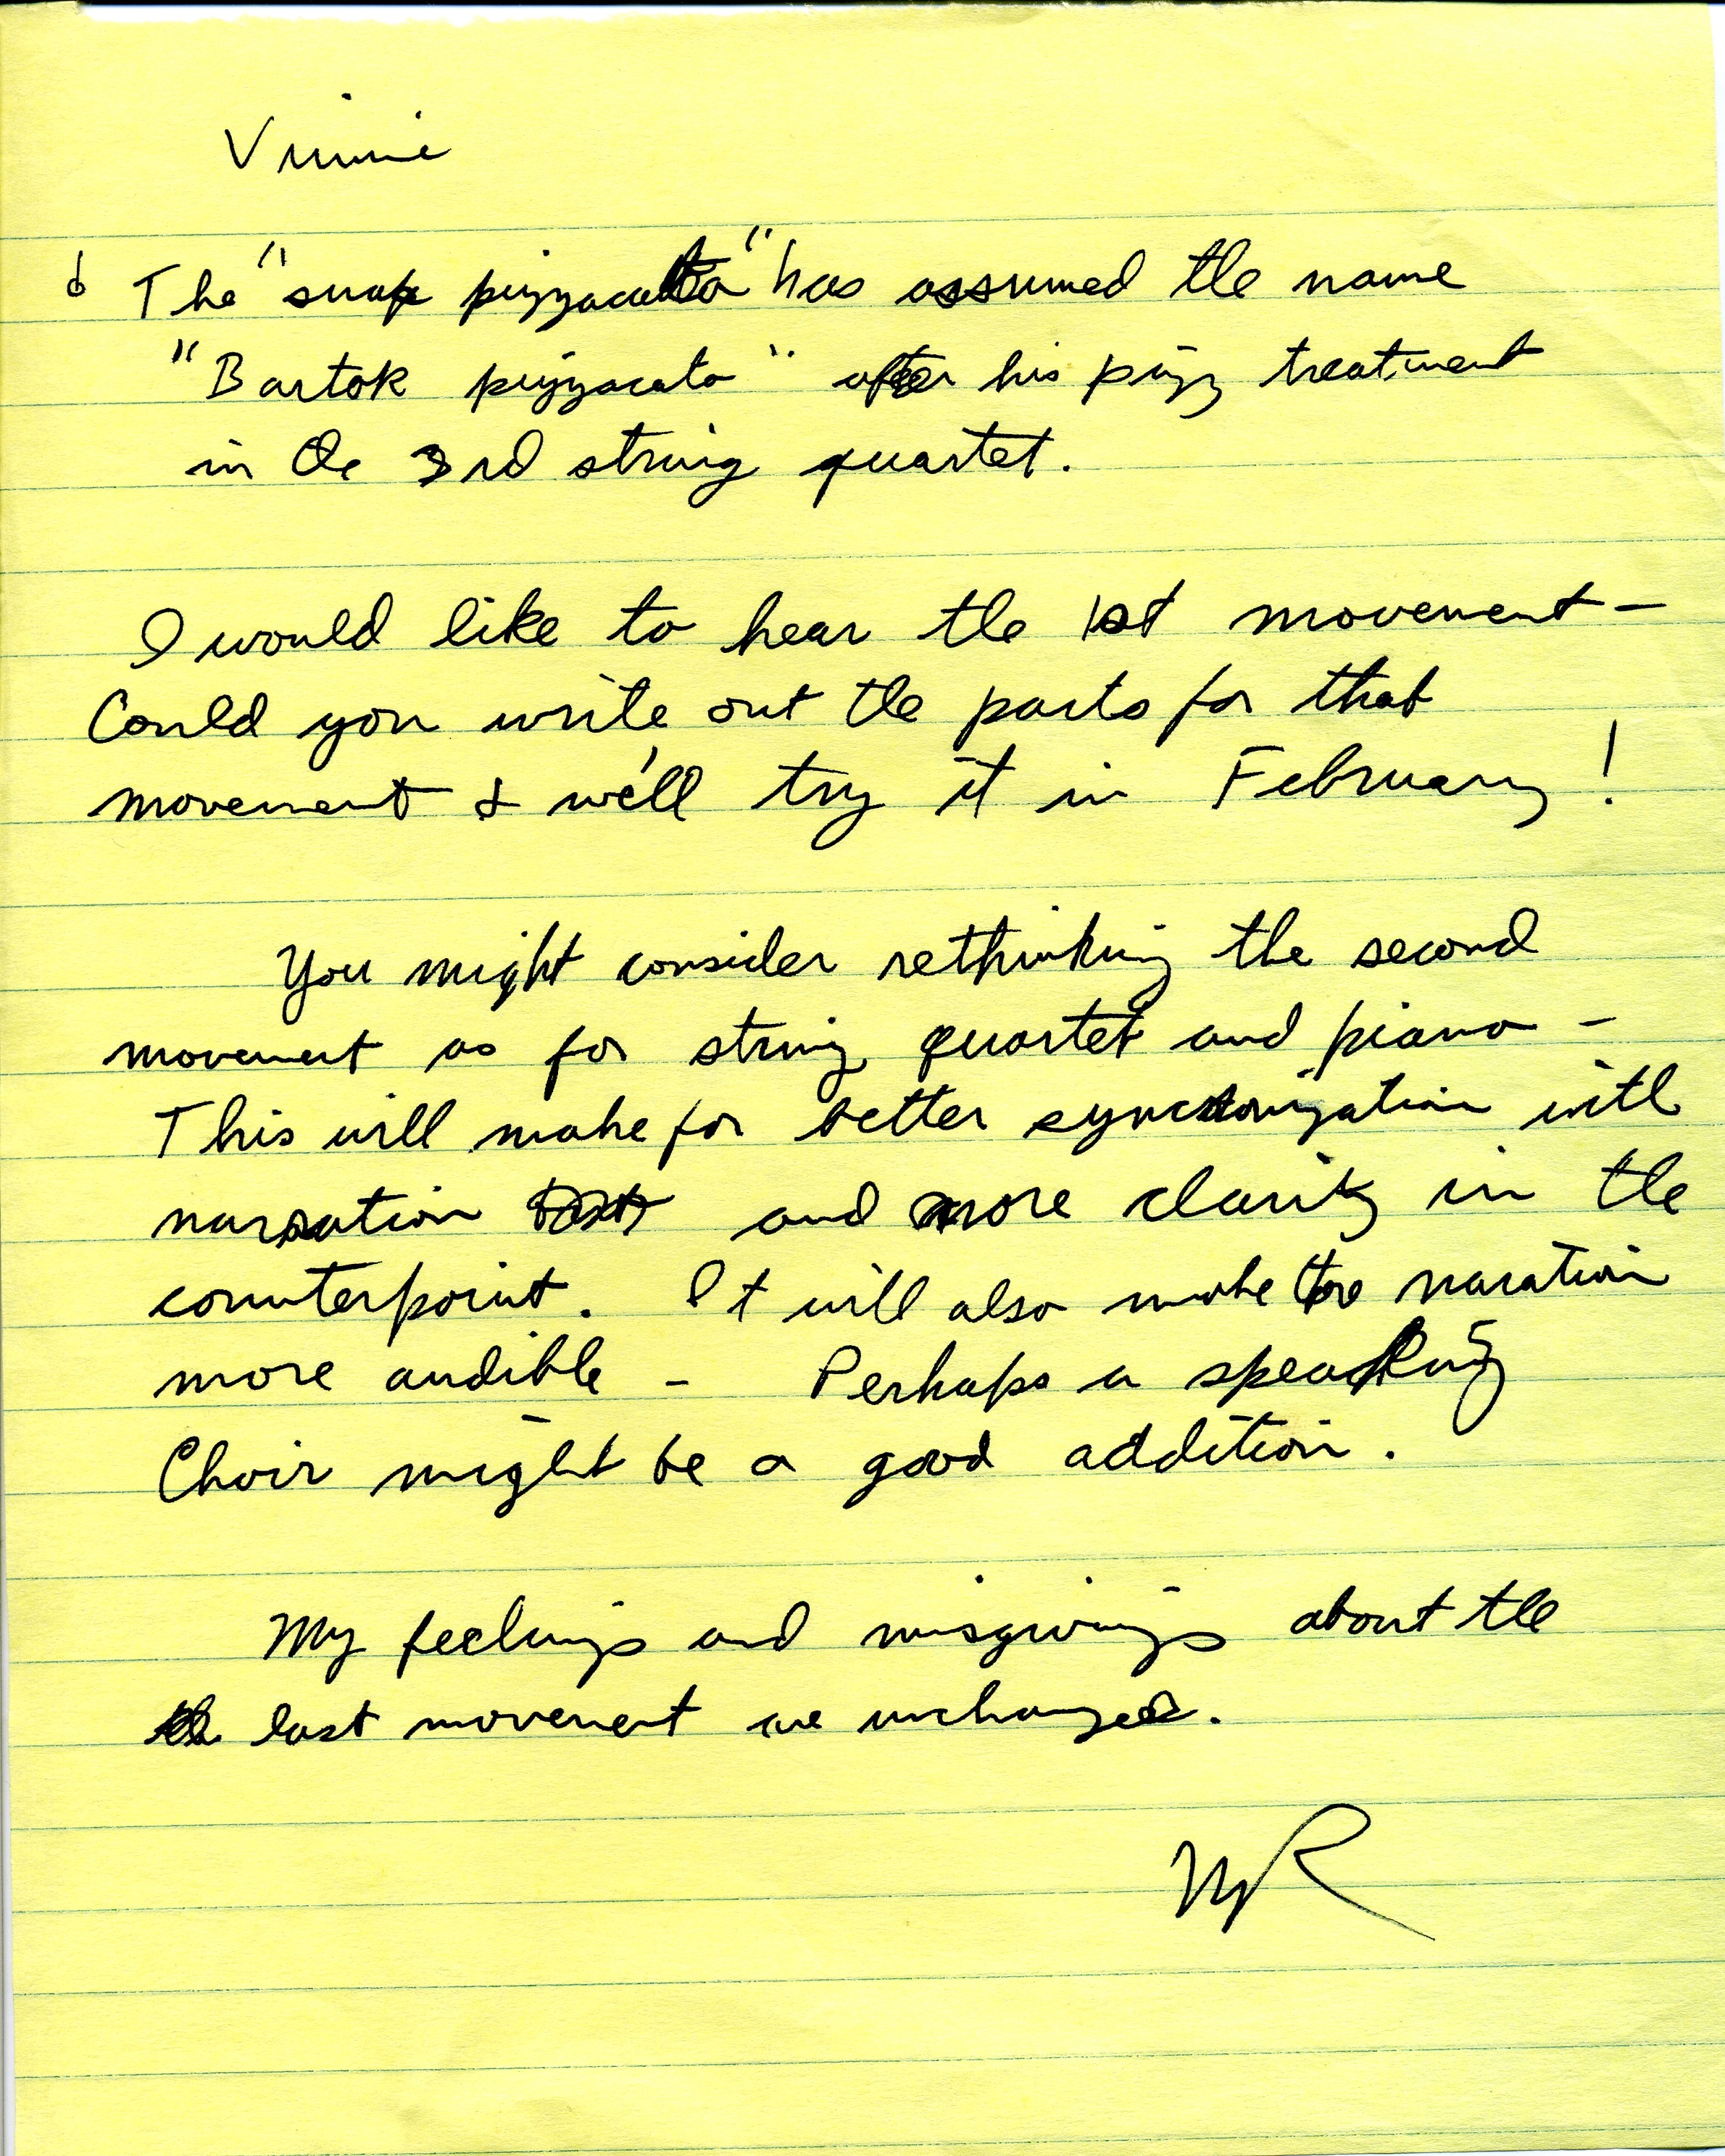 Vinnie
The "snap pizzacatto" has assumed the name
"Bartok pizzacato" after his pizz treatment
in the 3rd string quartet.
I would like to hear the 1st movement –
Could you write out the parts for that
movement & we'll try it in February!
You might consider rethinking the second
movement as for string quartet and piano –
This will make for better synchronization with
narration and more clarity in the
counterpoint. It will also make the naration
more audible – Perhaps a speaking
Choir might be a good addition.
My feelings and misgivings about the
last movement are unchanged.
MR